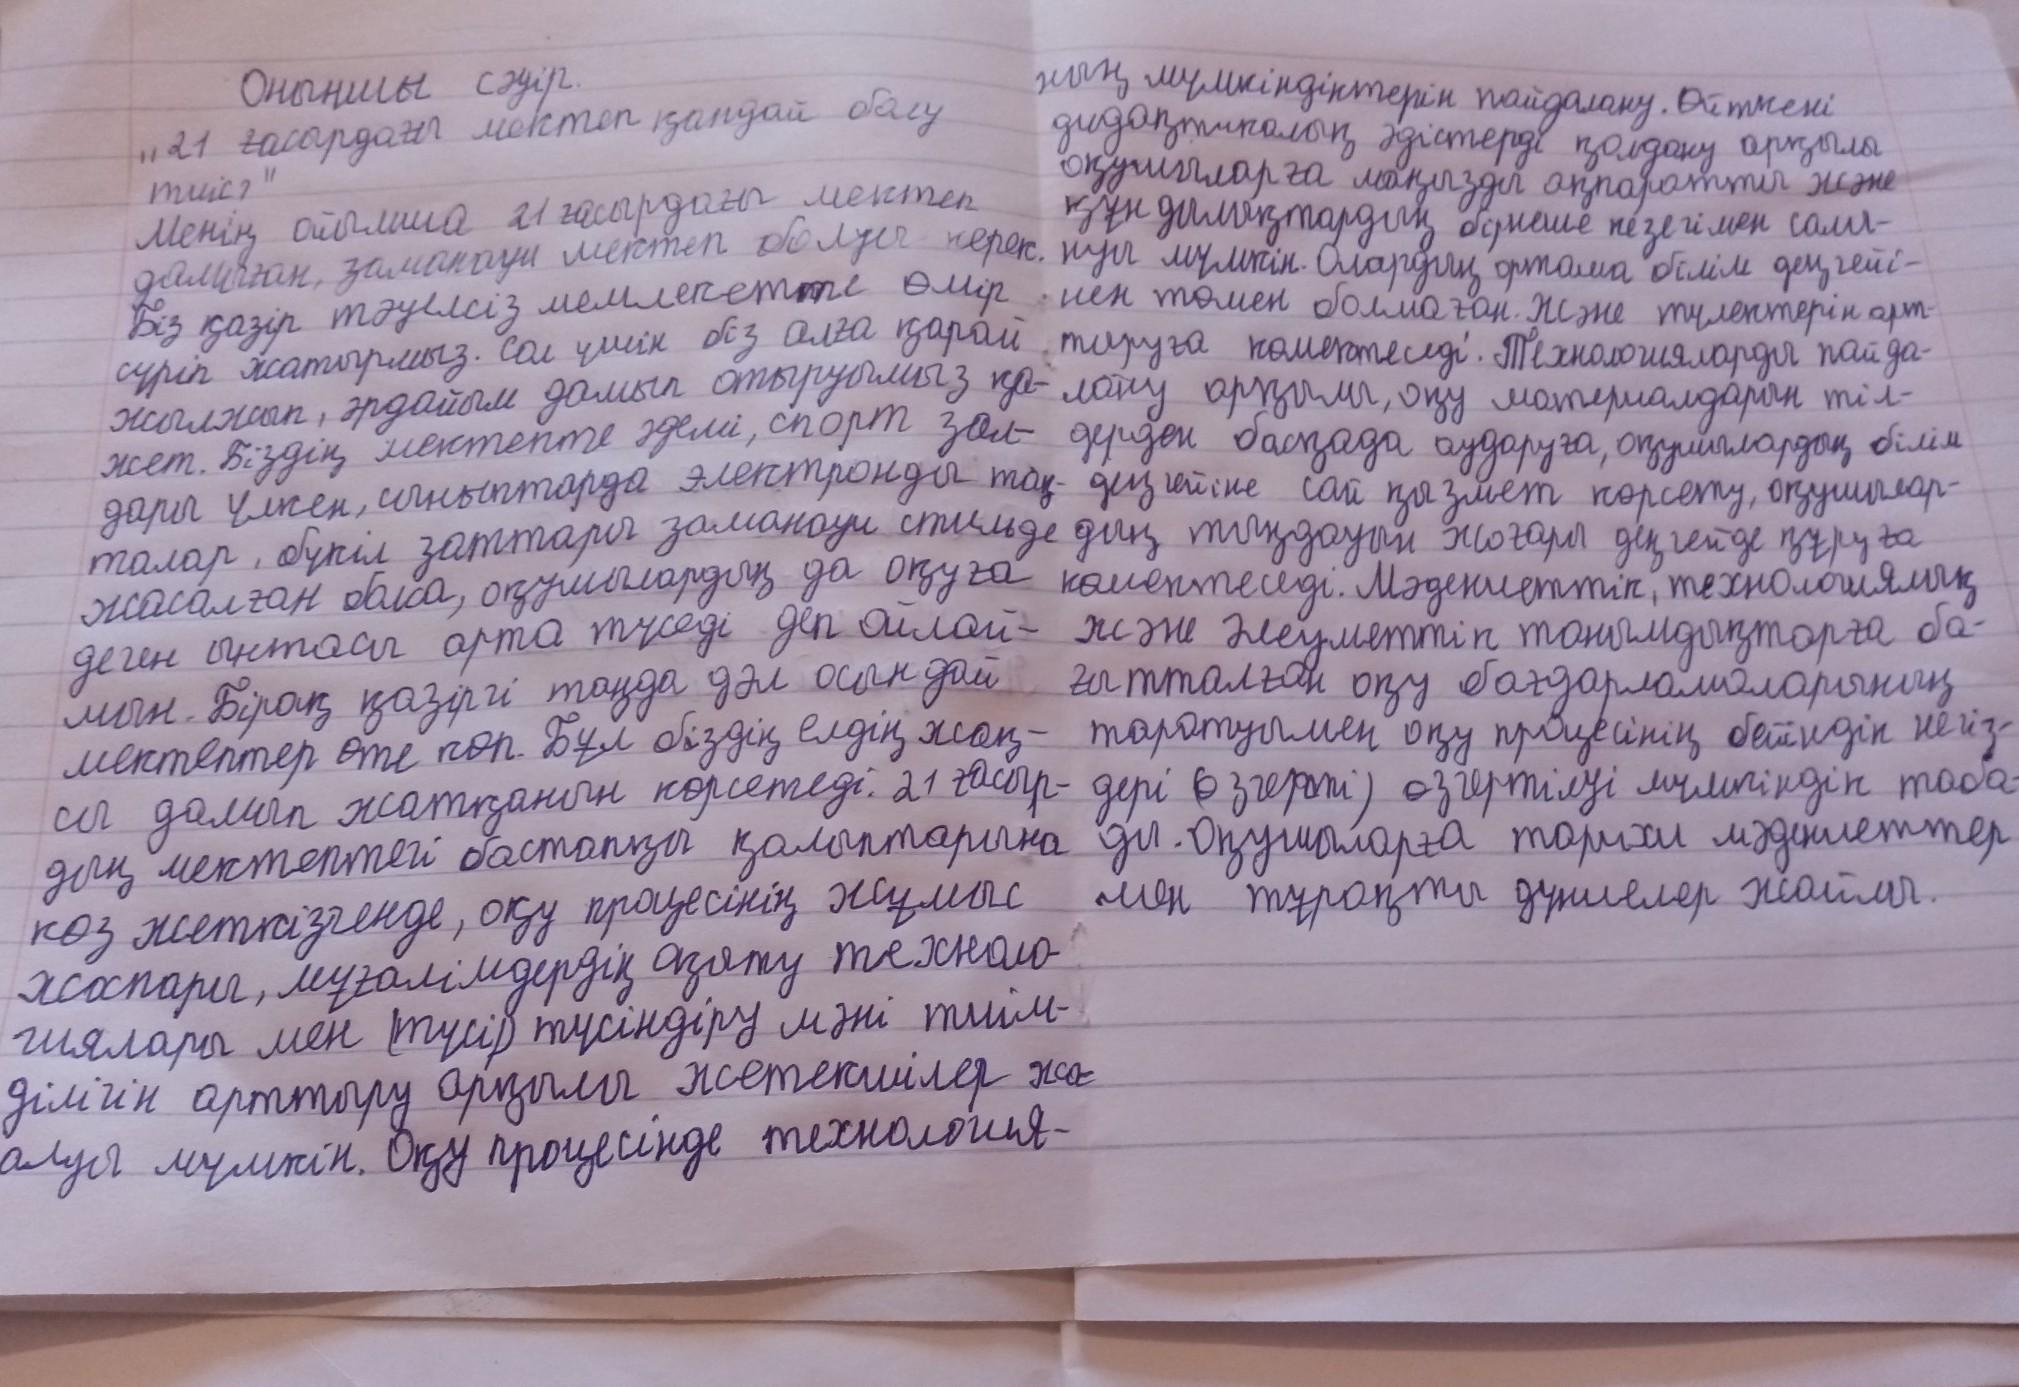 Оныншы сәуір.
„21 ғасырдағы мектеп қандай болу
тиіс?"
Менің ойымша 21 ғасырдағы мектеп
дамыған, заманауи мектеп болуы керек.
Біз қазір тәуелсіз мемлекетте өмір
сүріп жатырмыз. Сол үшін біз алға қарай
жылжып, әрдайым дамып отыруымыз қа-
жет. Біздің мектепте әдемі, спорт зал-
дары үлкен, сыныптарда электронды тақ-
талар, бүкіл заттары заманауи стильде
жасалған болса, оқушылардың да оқуға
деген ынтасы арта түседі деп ойлай-
мын. Бірақ қазіргі таңда дәл осындай
мектептер өте көп. Бұл біздің елдің жақ-
сы дамып жатқанын көрсетеді. 21 ғасыр-
дың мектептегі бастапқы қалыптарына
көз жеткізгенде, оқу процесінің жұмыс
жоспары, мұғалімдердің оқыту техноло-
гиялары мен (түсір) түсіндіру мәні тиім-
ділігін арттыру арқылы жетекшілер жа-
алуы мүмкін. Оқу процесінде технология-
ның мүмкіндіктерін пайдалану. Өйткені
дидактикалық әдістерді қолдану арқылы
оқушыларға маңызды ақпаратты және
құндылықтардың бірнеше кезегімен салы-
нуы мүмкін. Олардың ортама білім деңгейі-
нен төмен болмаған. Және түлектерін арт-
тыруға көмектеседі. Технологияларды пайда-
лану арқылы, оқу материалдарын тіл-
дерден басқада аударуға, оқушылардың білім
деңгейіне сай қызмет көрсету, оқушылар-
дың тыңдауын жоғары деңгейде құруға
көмектеседі. Мәдениеттік, технологиялық
және әлеуметтік танымдықтарға ба-
ғытталған оқу бағдарламаларының
таратуымен оқу процесінің бейіндік негіз-
дері (өзгерті) өзгертілуі мүмкіндік таба-
ды. Оқушыларға тарихи мәдениеттер
мен тұрақты дүниелер жайлы.